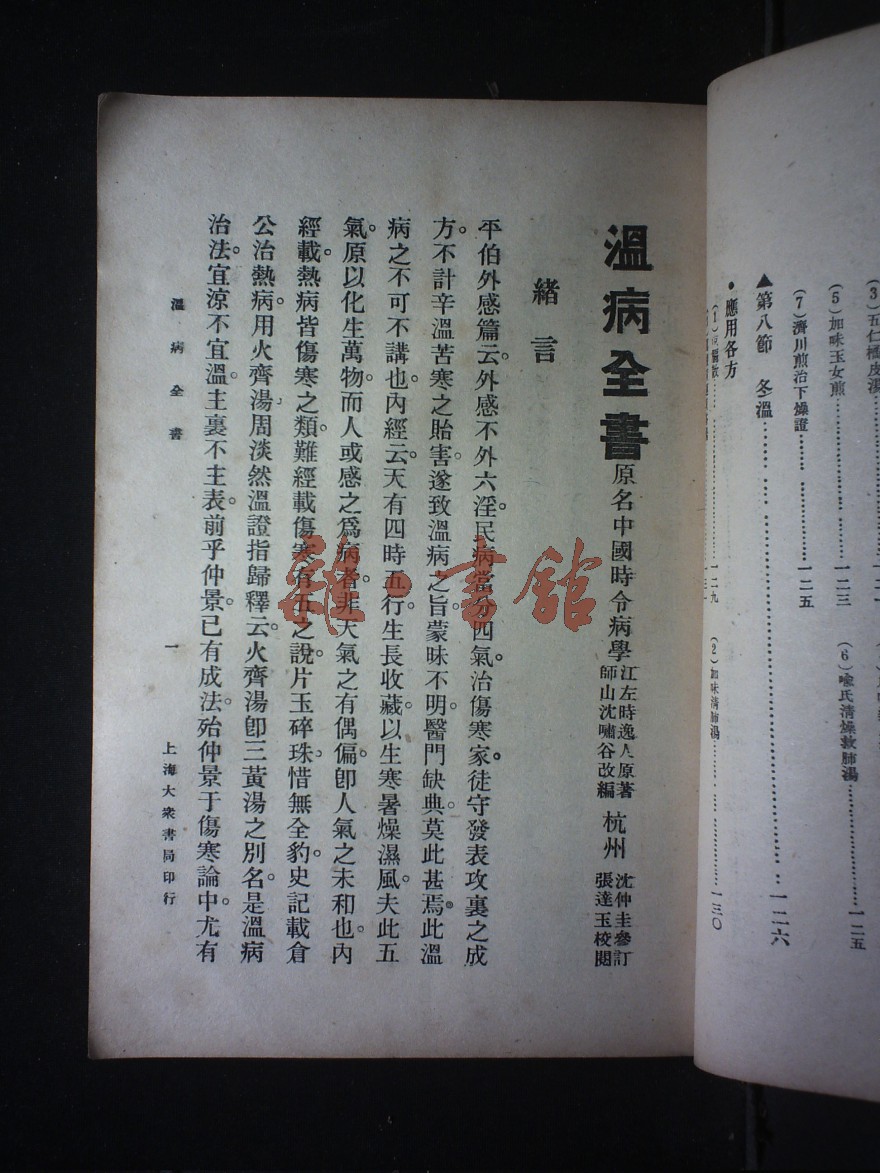 (3)五仁橘皮湯
一二五
(5)加味玉女煎……………一二三
(6)喻氏清燥救肺湯
(7)濟川煎治下燥證……………一二五
▲第八節 冬溫……………一二六
●應用各方
一二九
(2)加味清肺湯……………一三〇
溫病全書
原名中國時令病學
江左時逸人原著
師山沈嘯谷改編
杭州
沈仲圭參訂
張達玉校閱
緒言
平伯外感篇云。外感不外六淫。民病當分四氣。治傷寒家。徒守發表攻裏之成
方。不計辛溫苦寒之貽害。遂致溫病之旨。蒙昧不明。醫門缺典。莫此甚焉。此溫
病之不可不講也。內經云。天有四時五行。生長收藏。以生寒暑燥濕風。夫此五
氣。原以化生萬物。而人或感之爲病者。非天氣之有偶偏。卽人氣之未和也。內
經載熱病皆傷寒之類。難經載傷寒有五之說。片玉碎珠。惜無全豹。史記載倉
公治熱病。用火齊湯。周淡然溫證指歸釋云。火齊湯卽三黃湯之別名。是溫病
治法。宜涼不宜溫。主裏不主表。前乎仲景。已有成法。殆仲景于傷寒論中。尤有
溫病全書
一
上海大衆書局印行
雜·書館